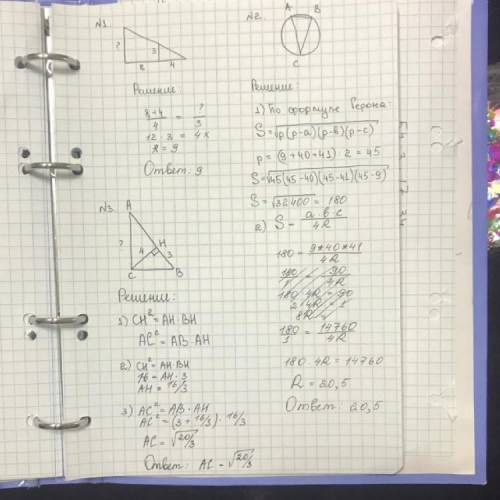 №1.
?
3
8
4
Решение
8+4/4 = ?/3
12 · 3 = 4x
x = 9
Ответ: 9
№3.
A
?
H
4
3
C
B
Решение:
1) CH² = AH · BH
AC² = AB · AH
2) CH² = AH · BH
16 = AH · 3
AH = 16/3
3) AC² = AB · AH
AC² = (3 + 16/3) · 16/3
AC = √20/3
Ответ: AC = √20/3
№2.
A
B
C
Решение:
1) По формуле Герона:
S = √p(p-a)(p-b)(p-c)
p = (9+40+41) : 2 = 45
S = √45(45-40)(45-41)(45-9)
S = √32400 = 180
2) S = a·b·c/4R
180 = 9*40*41/4R
180/1 = 14760/4R
180 · 4R = 14760
R = 20,5
Ответ: 20,5